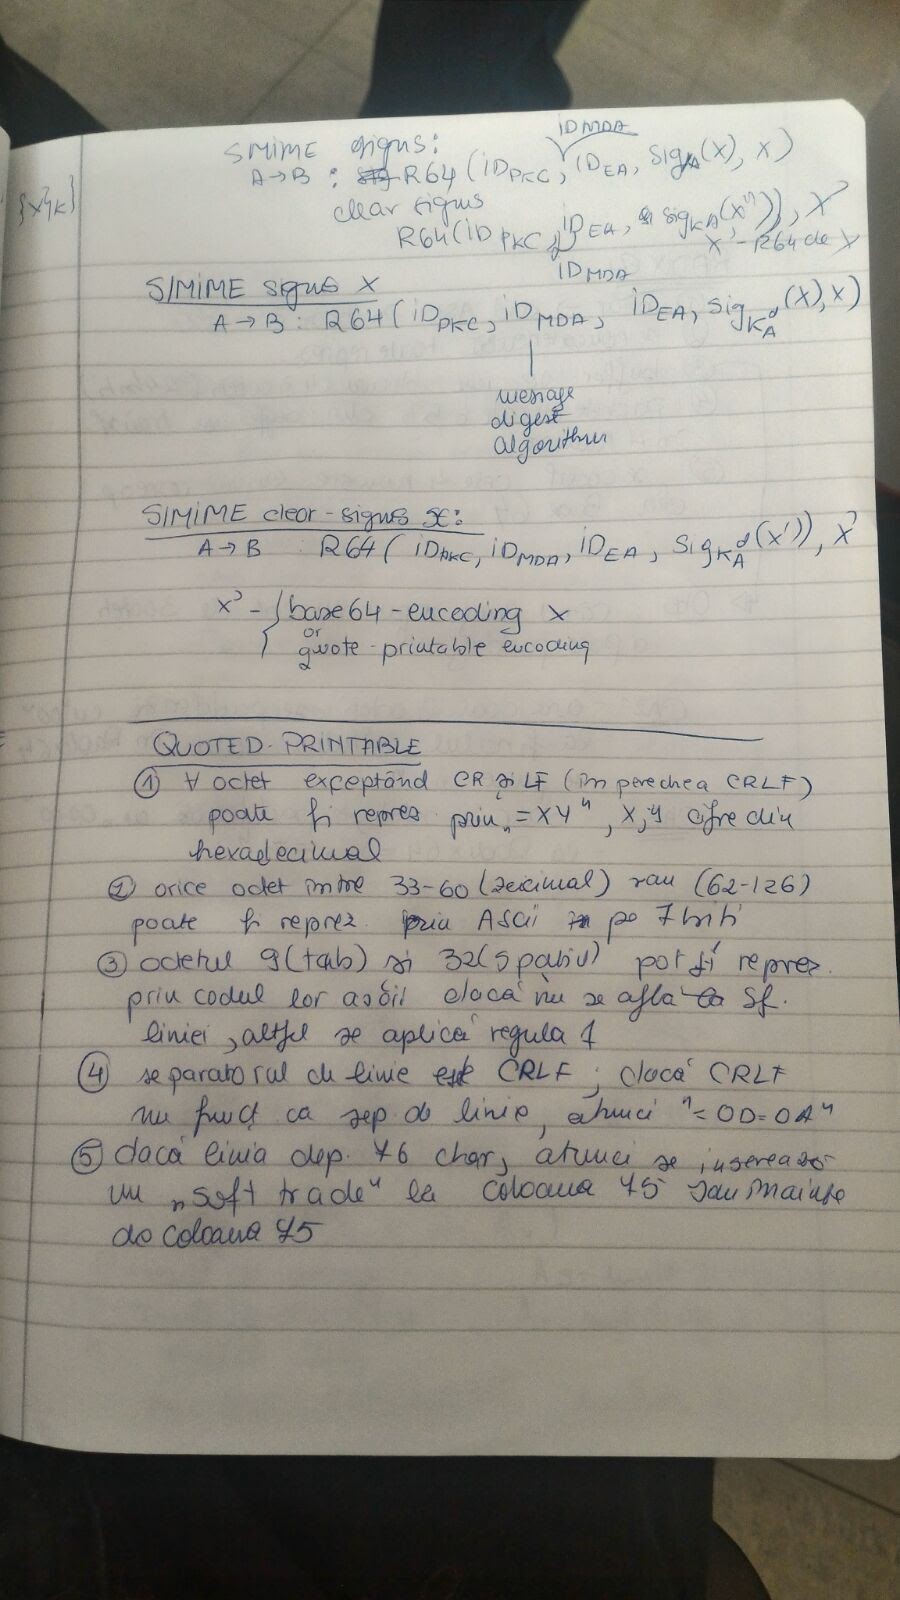 {x}k}
SMIME signs:
IDMDA
A→B : R64 (IDPKC, IDEA, SigA(X), X)
clear signs
R64(IDPKC, IDEA, sigKA(x")), X'
IDMDA
X' - R64 de X
S/MIME signs X
A→B : R64 (IDPKC, IDMDA, IDEA, sigKAd(X), X)
message
digest
algorithm
S/MIME clear-signs x:
A→B : R64 (IDPKC, IDMDA, IDEA, SigKAd(x')), X'
x' - { base64-encoding x
or
quote-printable encoding
QUOTED-PRINTABLE
① ∀ octet exceptând CR și LF (în perechea CRLF)
poate fi reprez prin „=XY", X,Y cifre din
hexadecimal
② orice octet între 33-60 (zecimal) sau (62-126)
poate fi reprez. prin Ascii pe 7 biti
③ octetul 9(tab) și 32(spatiu) pot fi reprez.
prin codul lor ascii dacă nu se află la sf.
liniei, altfel se aplică regula 1
④ separatorul de linie este CRLF; dacă CRLF
nu funct ca sep de linie, atunci "=OD=OA"
⑤ dacă linia dep. 76 char, atunci se inserează
un „soft trade" la coloana 75 sau mainte
de coloana 75